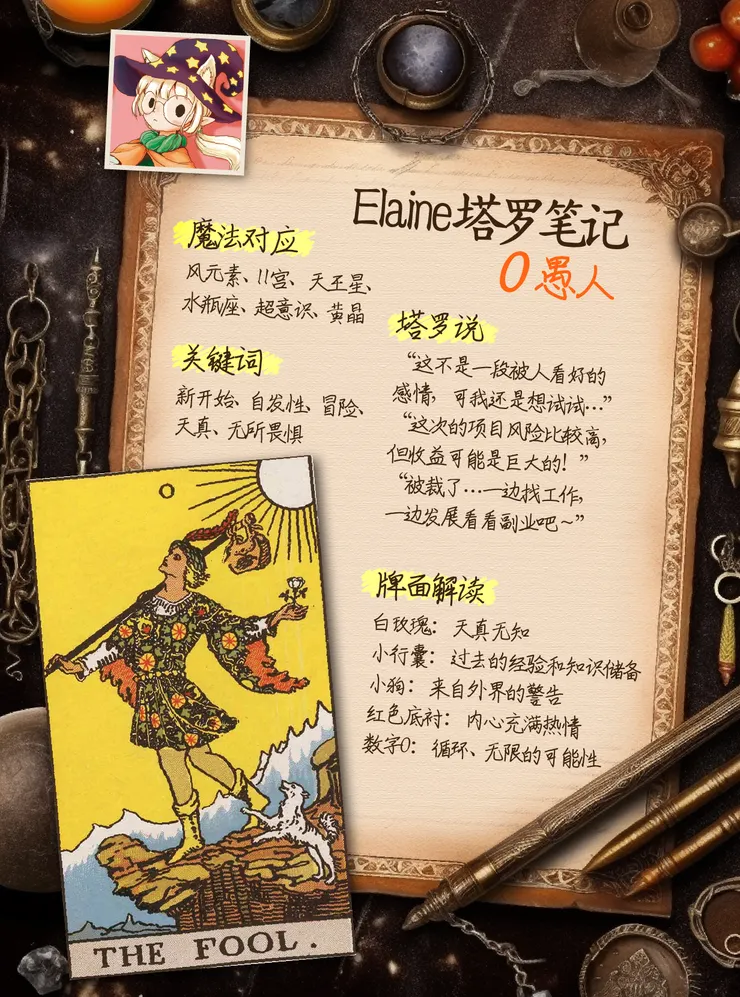 Elaine塔罗笔记
0 愚人
魔法对应
风元素、11宫、天王星、
水瓶座、超意识、黄晶
关键词
新开始、自发性、冒险、
天真、无所畏惧
塔罗说
“这不是一段被人看好的
感情，可我还是想试试…”
“这次的项目风险比较高，
但收益可能是巨大的！”
“被裁了…一边找工作，
一边发展看看副业吧~”
牌面解读
白玫瑰：天真无知
小行囊：过去的经验和知识储备
小狗：来自外界的警告
红色底衬：内心充满热情
数字0：循环、无限的可能性
0
THE FOOL.